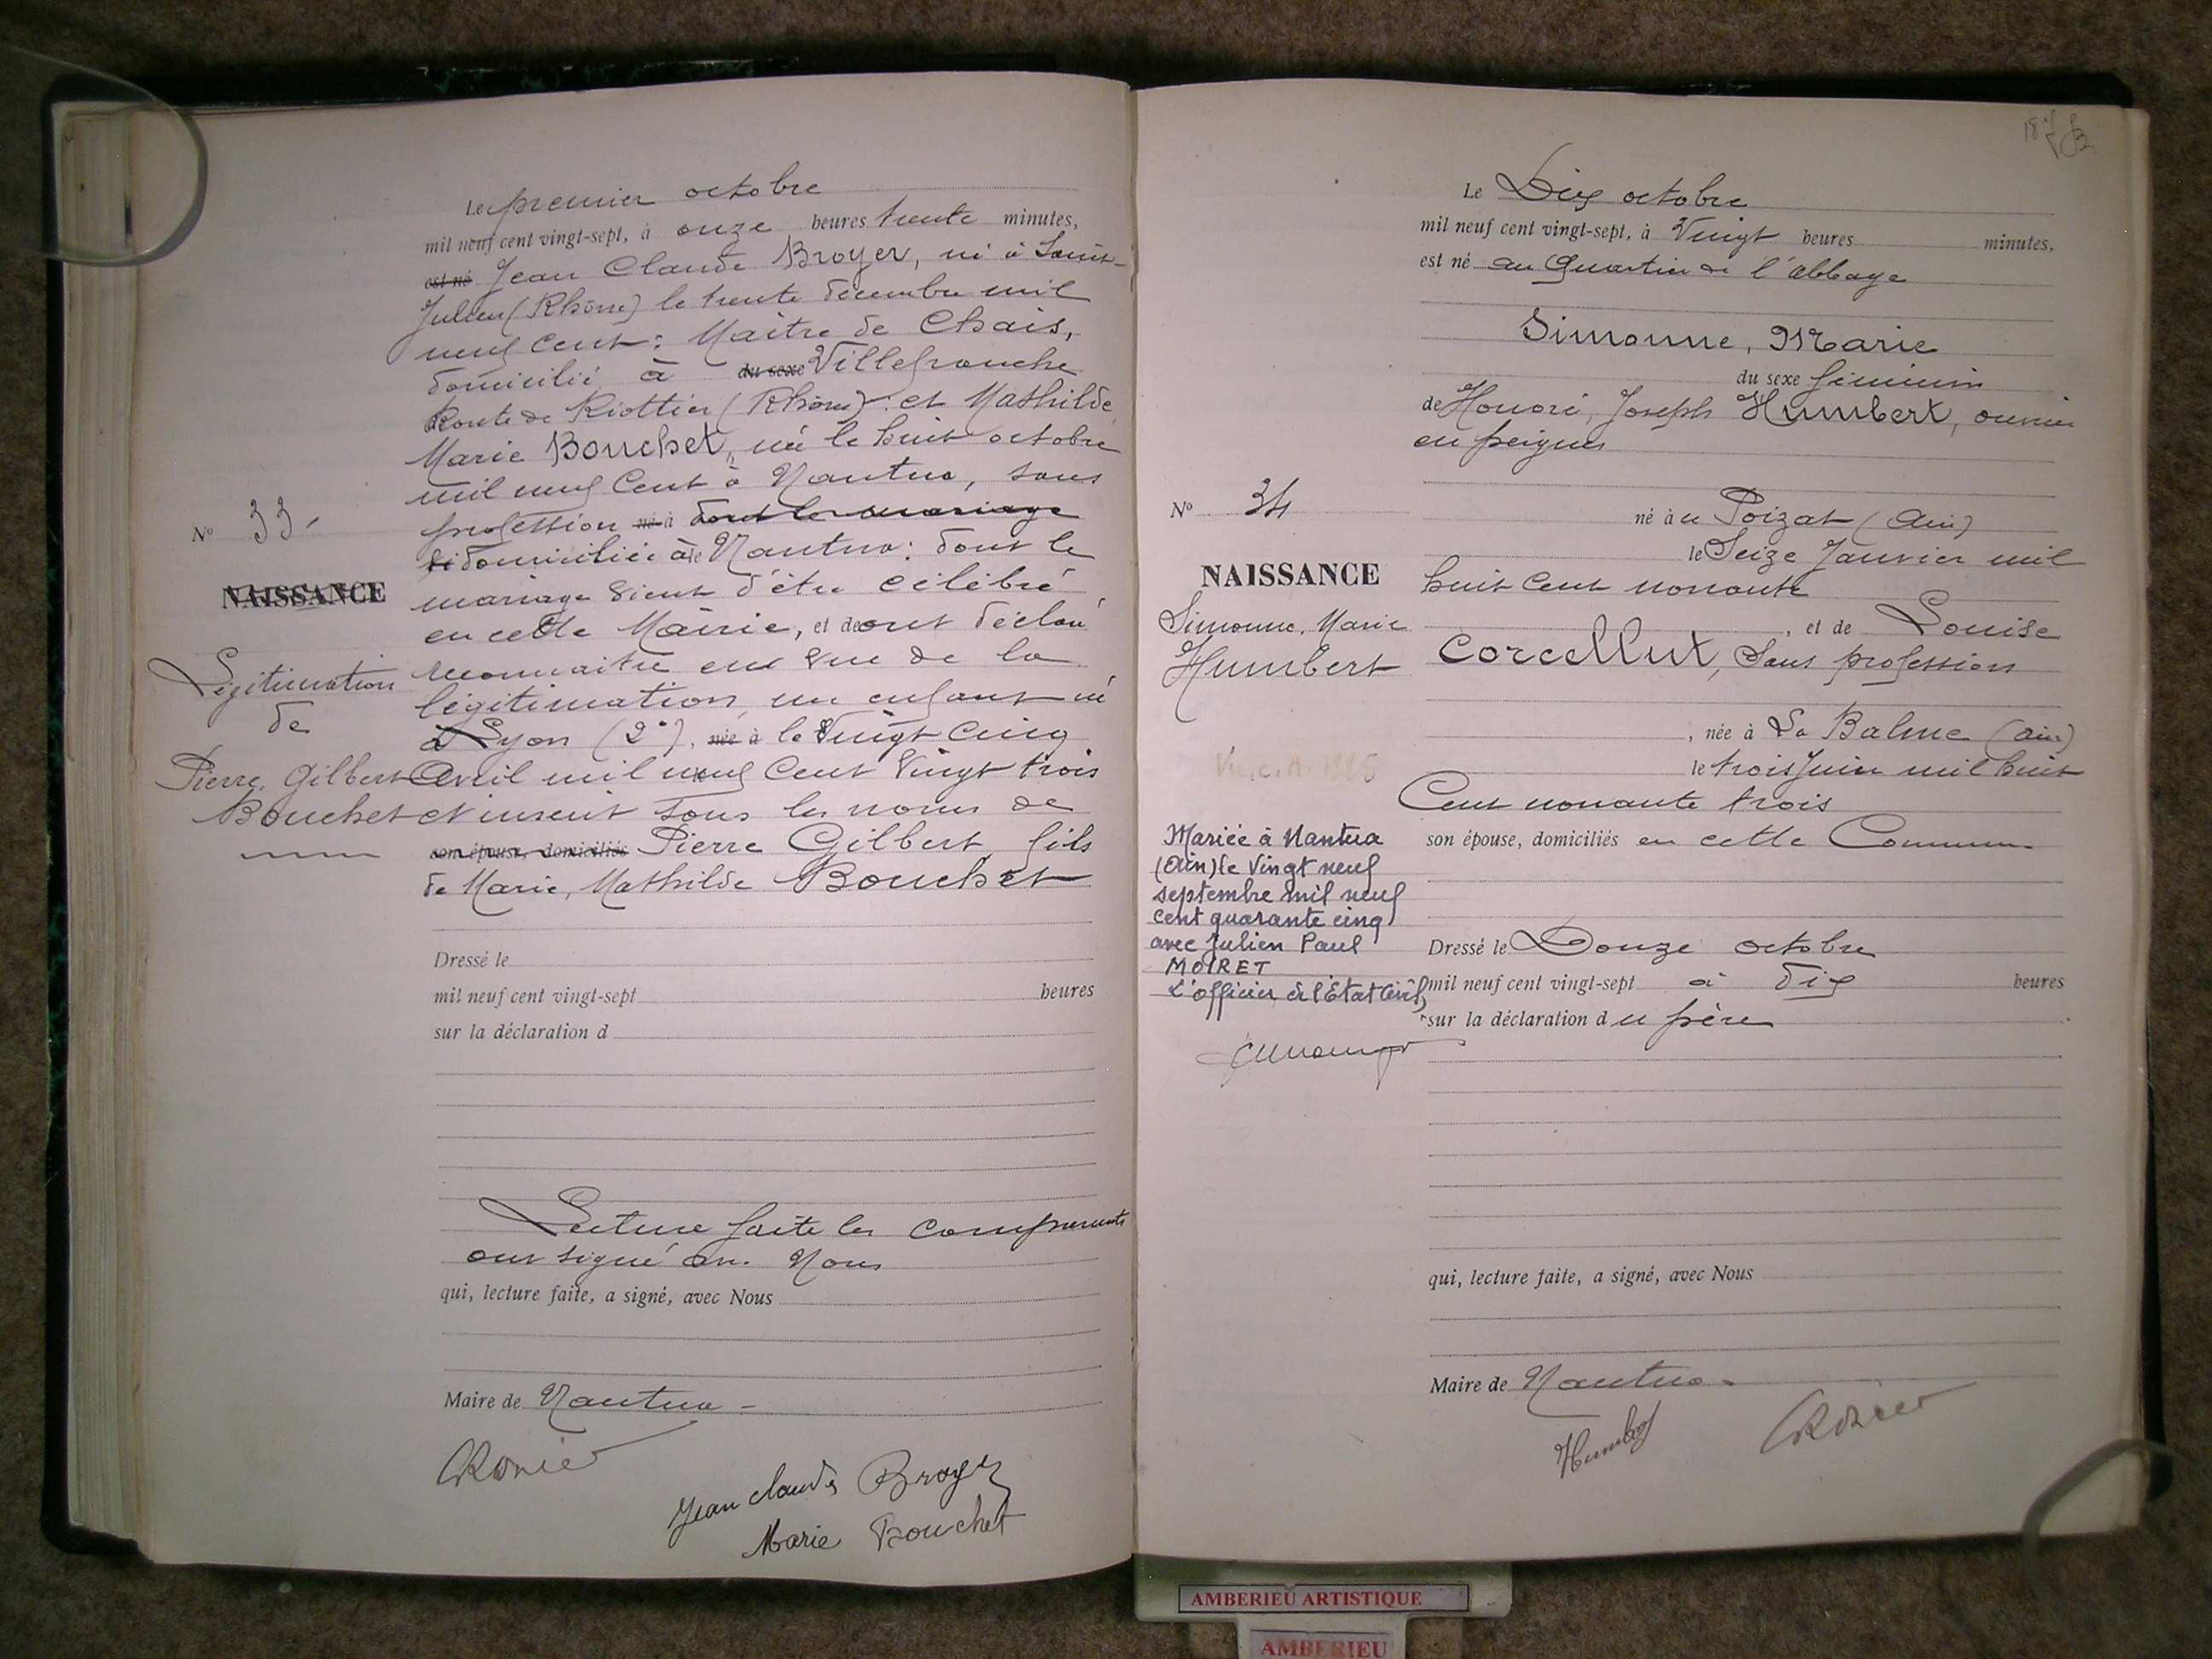 Le premier octobre
mil neuf cent vingt-sept, à onze heures trente minutes,
est né Jean Claude Broyer, né à Saint-
Julien (Rhône) le trente décembre mil
neuf cent : Maître de Chais,
domicilié à du sexe Villefranche
Route de Riottier (Rhône) et Mathilde
Marie Bouchet, née le huit octobre
mil neuf Cent à Nantua, sans
profession né à dont le mariage
domiciliée à Nantua : dont le
mariage vient d'être célébré
en cette Mairie, et de ont déclaré
reconnaitre en vue de la
légitimation, un enfant né
à Lyon (2°), née à le Vingt Cinq
Avril mil neuf Cent Vingt trois
et inscrit sous les noms de
son épouse, domiciliés Pierre Gilbert, fils
de Marie, Mathilde Bouchet
N° 33
NAISSANCE
Légitimation
de
Pierre, Gilbert
Bouchet
Dressé le
mil neuf cent vingt-sept heures
sur la déclaration d
Lecture faite les comparants
ont signé avec Nous
qui, lecture faite, a signé, avec Nous
Maire de Nantua
Jean claude Broyer
Marie Bouchet
Le Dix octobre
mil neuf cent vingt-sept, à Vingt heures minutes,
est né au Quartier de l'abbaye
Simonne, Marie
du sexe féminin
de Honoré, Joseph Humbert, ouvrier
en peignes
né à u Poizat (Ain)
le Seize Janvier mil
huit cent nonante
, et de Louise
Corcellut, Sans profession
, née à La Balme (Ain)
le trois Juin mil huit
Cent nonante trois
son épouse, domiciliés en cette Commune
N° 34
NAISSANCE
Simonne, Marie
Humbert
Mariée à Nantua
(Ain) le Vingt neuf
septembre mil neuf
cent quarante cinq
avec Julien Paul
MOIRET
L'officier de l'Etat Civil,
Dressé le Douze octobre
mil neuf cent vingt-sept à dix heures
sur la déclaration d u père
qui, lecture faite, a signé, avec Nous
Maire de Nantua
Humbert
AMBERIEU ARTISTIQUE
AMBERIEU